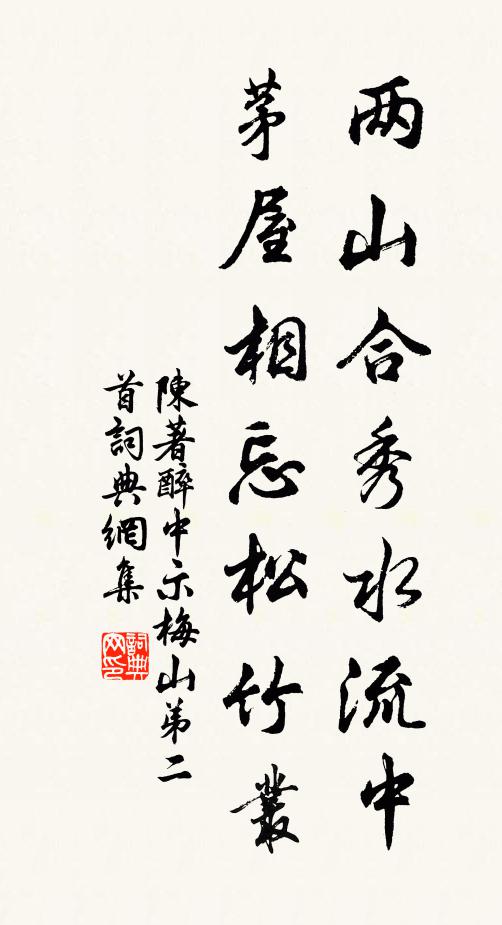 两山合秀水流中
茅屋相忘松竹叢
陳著醉中示梅山弟二
首詞典網集
詞典
网印